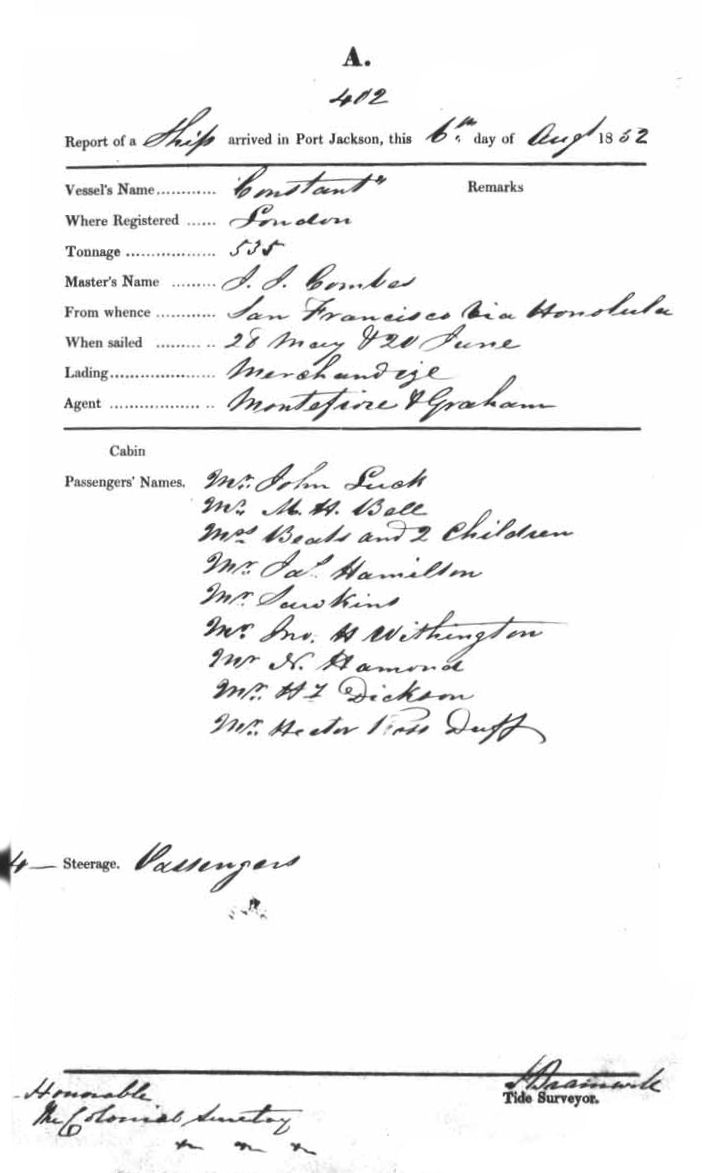 A.
402
Report of a Ship arrived in Port Jackson, this 6th. day of Augt 1852
Vessel's Name............ "Constant" Remarks
Where Registered ...... London
Tonnage .................. 535
Master's Name ......... J. J. Combes
From whence ............ San Francisco Via Honolulu
When sailed ......... .. 28 May & 20 June
Lading..................... Merchandize
Agent .................. .. Montefiore & Graham
Cabin
Passengers' Names. Mr. John Luck
Mr. M. H. Bell
Mrs Beats and 2 Children
Mr. Jas. Hamilton
Mr. Sawkins
Mr. Jno. H Withington
Mr N. Hamond
Mr. H Dickson
Mr. Hector Ross Duff
4 — Steerage. Passengers
Honorable
The Colonial Secretary
Tide Surveyor.